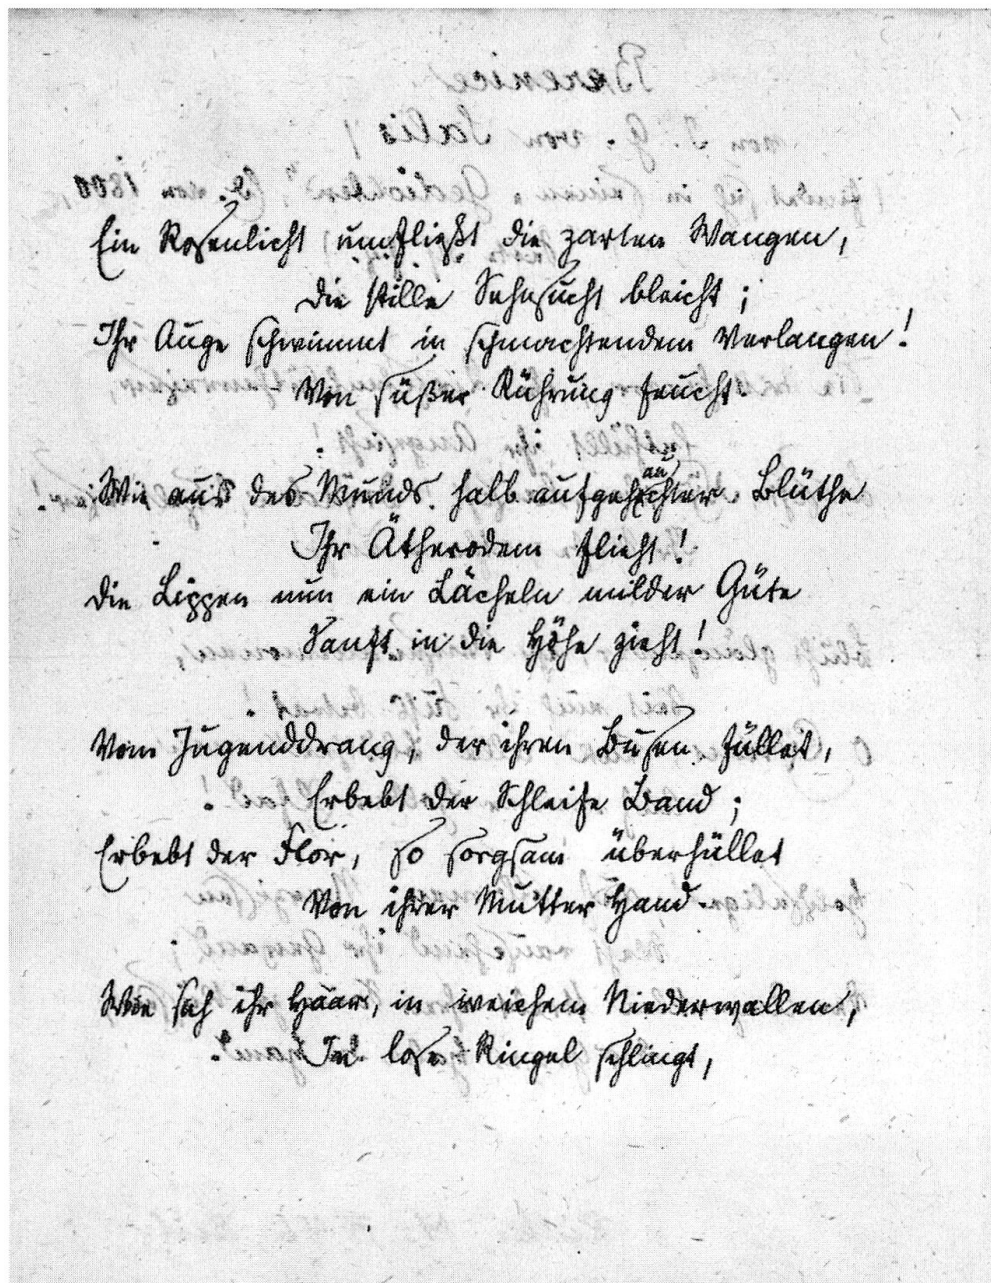 Ein Rosenlicht umfließt die zarten Wangen,
Die stille Sehnsucht bleicht;
Ihr Auge schwimmt in schmachtendem Verlangen!
Von süßer Rührung feucht.
Wie aus des Munds halb aufgehauchter Blüthe
Ihr Ätherodem flieht!
Die Lippen nun ein Lächeln milder Güte
Sanft in die Höhe zieht!
Vom Jugenddrang, der ihren Busen füllet,
Erbebt der Schleife Band;
Erbebt der Flor, so sorgsam überhüllet
Von ihrer Mutter Hand.
Wie sich ihr Haar, in weichem Niederwallen,
In lose Ringel schlingt,